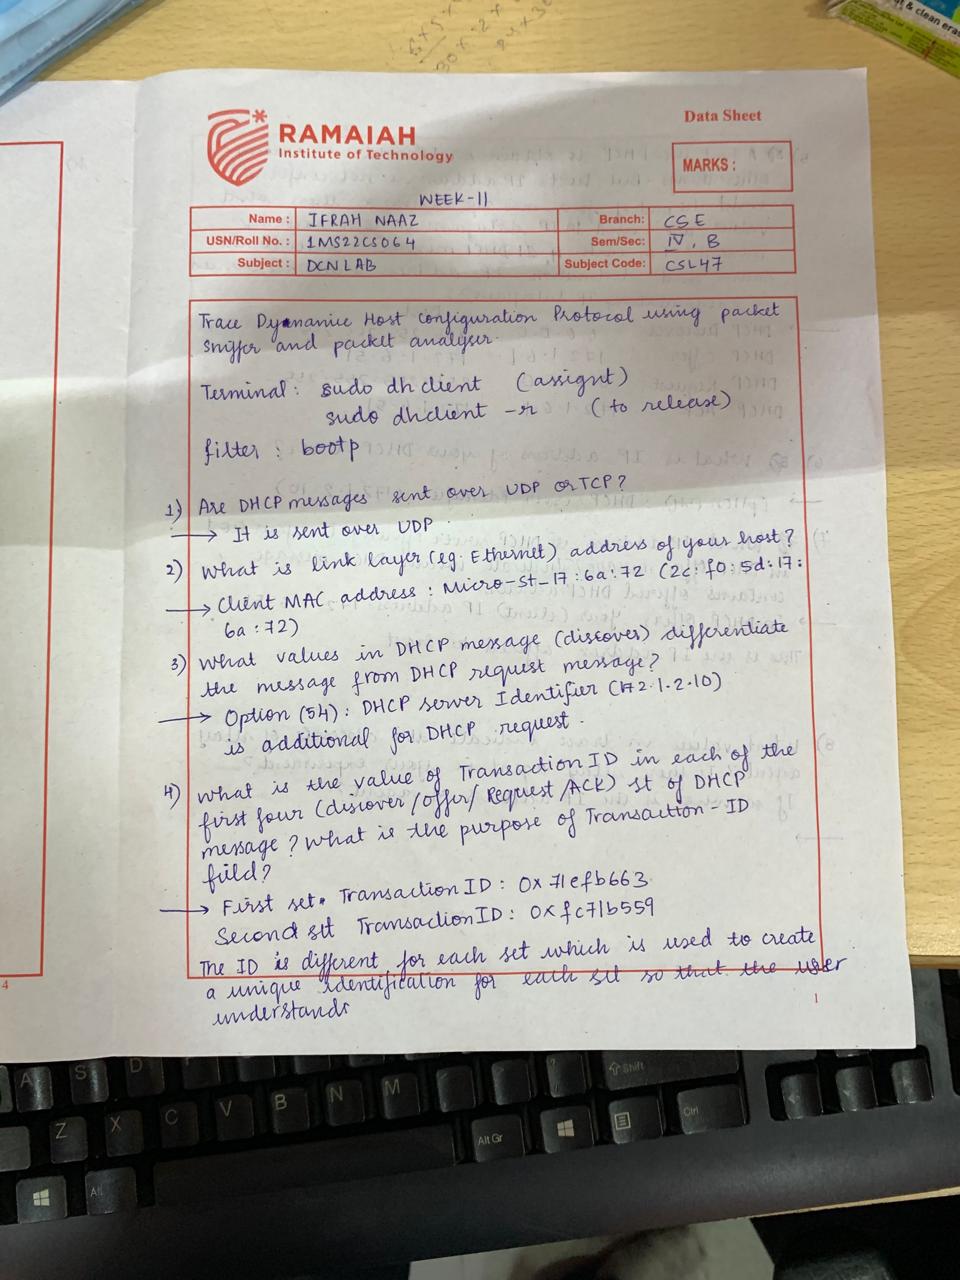 & clean eras
RAMAIAH
Institute of Technology
Data Sheet
MARKS :
WEEK-11
Name : IFRAH NAAZ Branch: CSE
USN/Roll No. : 1MS22CS064 Sem/Sec: IV, B
Subject : DCN LAB Subject Code: CSL47
Trace Dynamanic Host Configuration Protocol using packet
sniffer and packet analyser.
Terminal: sudo dhclient (assignt)
sudo dhclient -r (to release)
filter : bootp
1) Are DHCP messages sent over UDP or TCP?
→ It is sent over UDP.
2) What is link layer (eg. Ethernet) address of your host?
→ Client MAC address : Micro-st_17:6a:72 (2c:f0:5d:17:
6a:72)
3) What values in DHCP message (discover) differentiate
the message from DHCP request message?
→ Option (54): DHCP server Identifier (172.1.2.10)
is additional for DHCP request.
4) What is the value of Transaction ID in each of the
first four (discover/offer/Request/ACK) st of DHCP
message? What is the purpose of Transaction-ID
field?
→ First set. Transaction ID: 0x71efb663
Second set Transaction ID: 0xfc71b559
The ID is different for each set which is used to create
a unique identification for each set so that the user
understands
1
4
A S D
Z X C V B N M ?
Shift
Alt Gr Ctrl
Alt